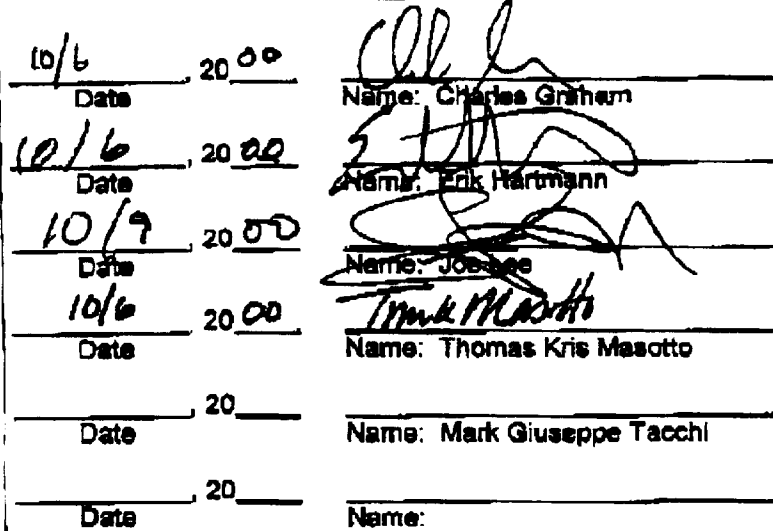 10/6, 20 00
Date Name: Charles Graham
10/6, 20 00
Date Name: Erik Hartmann
10/9 20 00
Date Name: Joe Lee
10/6 20 00 Masotto
Date Name: Thomas Kris Masotto
, 20
Date Name: Mark Giuseppe Tacchi
, 20
Date Name: